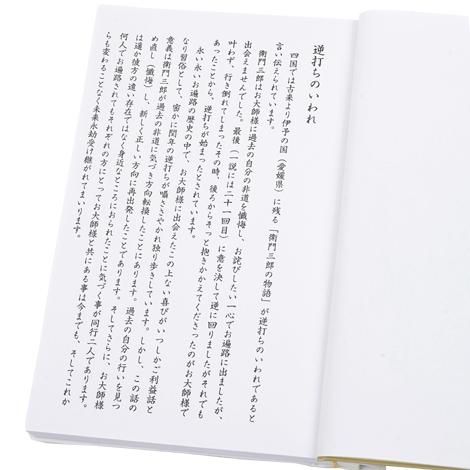 逆打ちのいわれ
四国では古来より伊予の国（愛媛県）に残る「衛門三郎の物語」が逆打ちのいわれであると
言い伝えられています。
衛門三郎はお大師様に過去の自分の非道を懺悔し、お詫びしたい一心でお遍路に出ましたが、
出会えませんでした。最後（一説には二十一回目）に意を決して逆に回りましたがそれでも
叶わず、行き倒れてしまったその時、後ろからそっと抱きかかえてくださったのがお大師様で
あったことから、逆打ちが始まったとされています。
永い永いお遍路の歴史の中で、お大師様に出会えたこの上ない喜びがいつしかご利益話と
なり習俗として、密かに閏年の逆打ちが囁きささやかれ独り歩きしています。しかし、この話の
意義は衛門三郎が過去の非道に気づき方向転換したことにあります。過去の自分の行いを見つ
め直し（懺悔）し、新しく正しい方向に再出発したことであります。そしてさらに、お大師様
は遠か彼方の遠い存在ではなく身近なところにおられたことに気づく事が同行二人であります。
何人でお遍路されてもそれぞれの方にとってお大師様と共にある事は今までも、そしてこれか
らも変わることなく未来永劫受け継がれてまいります。